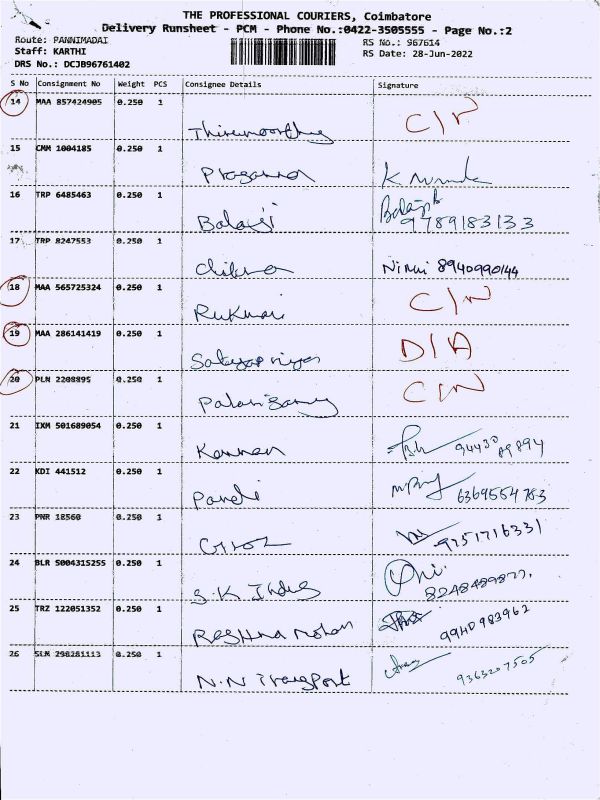 THE PROFESSIONAL COURIERS, Coimbatore
Delivery Runsheet - PCM - Phone No.:0422-3505555 - Page No.:2
Route: PANNIMADAI
Staff: KARTHI
DRS No.: DCJB96761402
RS No.: 967614
RS Date: 28-Jun-2022
S No Consignment No Weight PCS Consignee Details Signature
14 MAA 857424905 0.250 1
Thirumoorthy
15 CMM 1004185 0.250 1
Prasanna K
16 TRP 6485463 0.250 1
Balaji Balaji 9789183133
17 TRP 8247553 0.250 1
Chitra Nirmi 8940990144
18 MAA 565725324 0.250 1 C/N
Rukmani
19 MAA 286141419 0.250 1 D/A
Sathyapriya
20 PLN 2208895 0.250 1 C/N
Palanisamy
21 IXM 501689054 0.250 1
Kannan 9443089894
22 KDI 441512 0.250 1
Pandi 6369554783
23 PNR 18560 0.250 1
9751716331
24 BLR 5004315255 0.250 1
S.K. Indus
25 TRZ 122051352 0.250 1
Reshna Mohan 9940983962
26 SLM 298281113 0.250 1
N.N Transport 9363207505